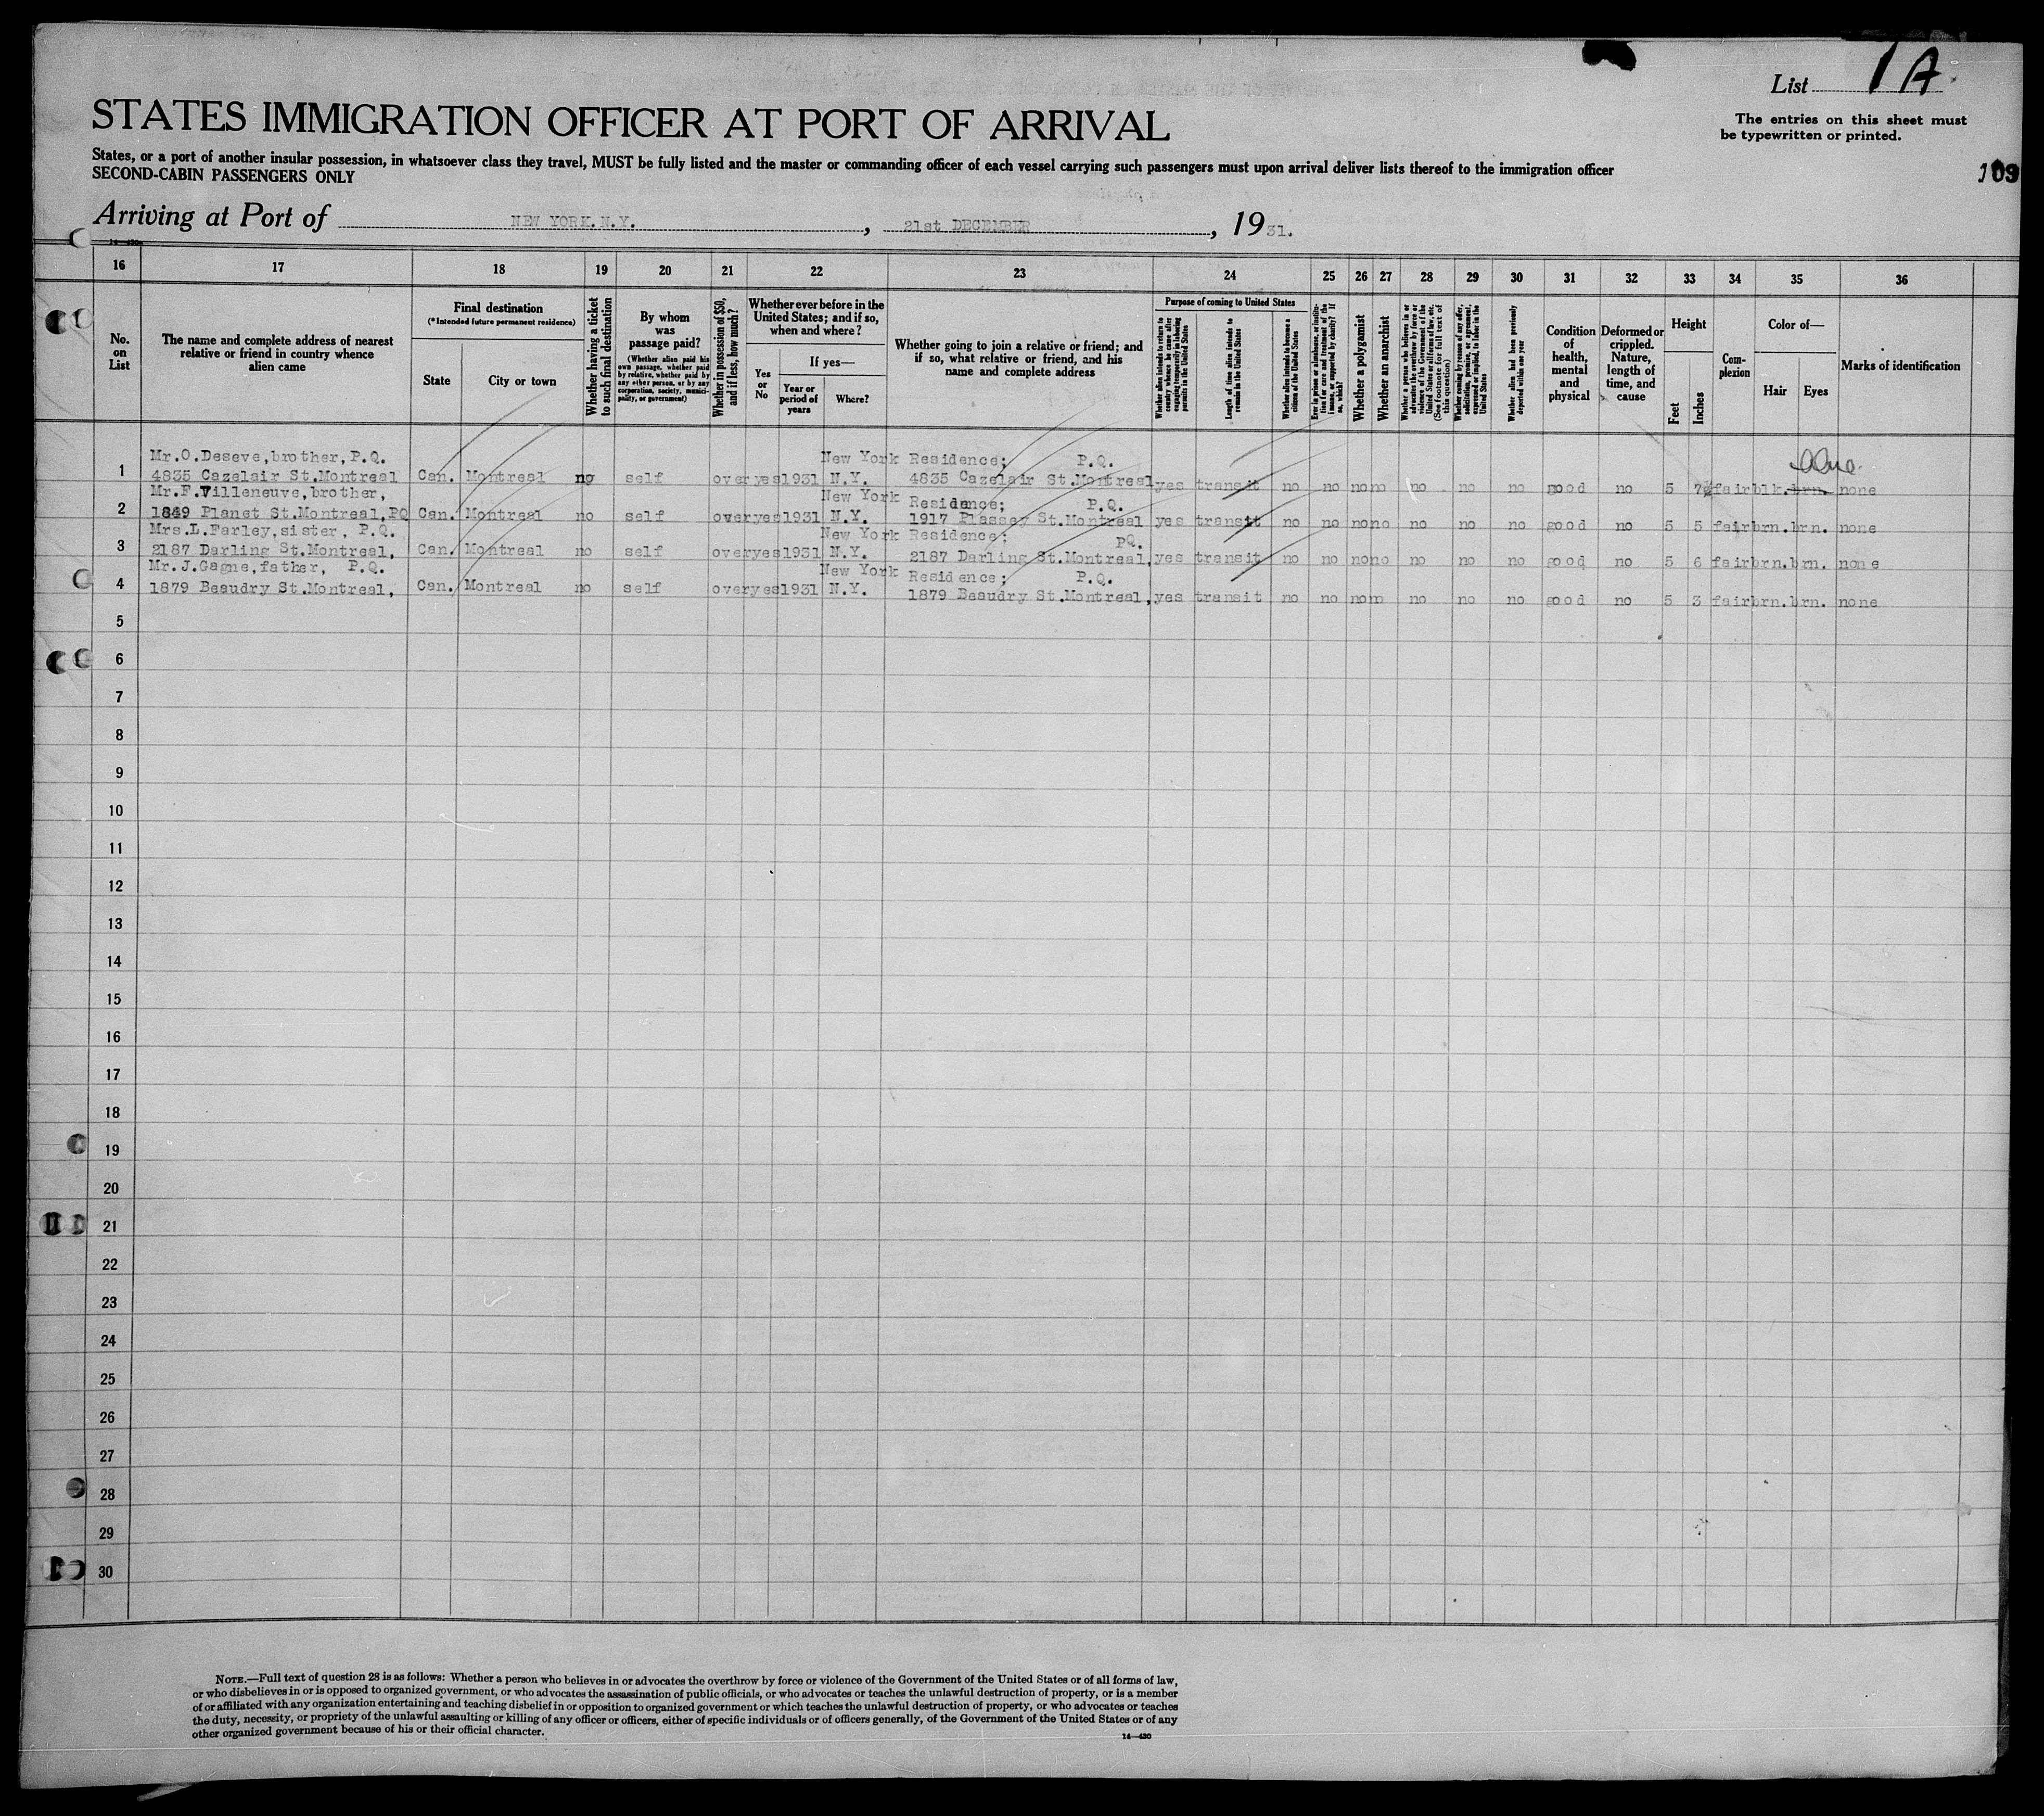 List 1A
The entries on this sheet must
be typewritten or printed.
STATES IMMIGRATION OFFICER AT PORT OF ARRIVAL
States, or a port of another insular possession, in whatsoever class they travel, MUST be fully listed and the master or commanding officer of each vessel carrying such passengers must upon arrival deliver lists thereof to the immigration officer
SECOND-CABIN PASSENGERS ONLY
109
Arriving at Port of NEW YORK.N.Y. , 21st DECEMBER , 1931.
14—430
16 17 18 19 20 21 22 23 24 25 26 27 28 29 30 31 32 33 34 35 36
No. on List
The name and complete address of nearest relative or friend in country whence alien came
Final destination
(*Intended future permanent residence)
State
City or town
Whether having a ticket to such final destination
By whom was passage paid?
(Whether alien paid his own passage, whether paid by relative, whether paid by any other person, or by any corporation, society, municipality, or government)
Whether in possession of $50, and if less, how much?
Whether ever before in the United States; and if so, when and where?
Yes or No
If yes—
Year or period of years
Where?
Whether going to join a relative or friend; and if so, what relative or friend, and his name and complete address
Purpose of coming to United States
Whether alien intends to return to country whence he came after engaging temporarily in laboring pursuits in the United States
Length of time alien intends to remain in the United States
Whether alien intends to become a citizen of the United States
Ever in prison or almshouse, or institution for care and treatment of the insane, or supported by charity? If so, which?
Whether a polygamist
Whether an anarchist
Whether a person who believes in or advocates the overthrow by force or violence of the Government of the United States or all forms of law, etc. (See footnote for full text of this question)
Whether coming by reason of any offer, solicitation, promise, or agreement, expressed or implied, to labor in the United States
Whether alien had been previously deported within one year
Condition of health, mental and physical
Deformed or crippled. Nature, length of time, and cause
Height
Feet
Inches
Complexion
Color of—
Hair
Eyes
Marks of identification
Mr.O.Deseve,brother,P.Q. New York Residence; P.Q. blue
1 4835 Cazelair St.Montreal Can. Montreal no self over yes 1931 N.Y. 4835 Cazelair St.Montreal yes transit no no no no no no no good no 5 7½ fair blk. brn. none
Mr.F.Villeneuve,brother, New York Residence; P.Q.
2 1849 Planet St.Montreal,PQ Can. Montreal no self over yes 1931 N.Y. 1917 Plassey St.Montreal yes transit no no no no no no no good no 5 5 fair brn. brn. none
Mrs.L.Farley,sister, P.Q. New York Residence; PQ.
3 2187 Darling St.Montreal, Can. Montreal no self over yes 1931 N.Y. 2187 Darling St.Montreal, yes transit no no no no no no no good no 5 6 fair brn. brn. none
Mr.J.Gagne,father, P.Q. New York Residence; P.Q.
4 1879 Beaudry St.Montreal, Can. Montreal no self over yes 1931 N.Y. 1879 Beaudry St.Montreal, yes transit no no no no no no no good no 5 3 fair brn. brn. none
5
6
7
8
9
10
11
12
13
14
15
16
17
18
19
20
21
22
23
24
25
26
27
28
29
30
NOTE.—Full text of question 28 is as follows: Whether a person who believes in or advocates the overthrow by force or violence of the Government of the United States or of all forms of law,
or who disbelieves in or is opposed to organized government, or who advocates the assassination of public officials, or who advocates or teaches the unlawful destruction of property, or is a member
of or affiliated with any organization entertaining and teaching disbelief in or opposition to organized government or which teaches the unlawful destruction of property, or who advocates or teaches
the duty, necessity, or propriety of the unlawful assaulting or killing of any officer or officers, either of specific individuals or of officers generally, of the Government of the United States or of any
other organized government because of his or their official character.
14—430